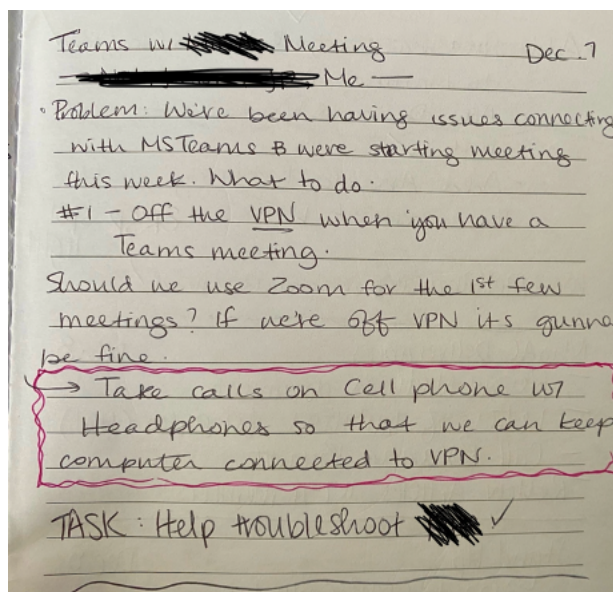 Teams w/ Meeting Dec. 7
— Me —
• Problem: We've been having issues connecting
with MS Teams & were starting meeting
this week. What to do.
#1 - Off the VPN when you have a
Teams meeting.
Should we use Zoom for the 1st few
meetings? If we're off VPN its gunna
be fine.
→ Take calls on Cell phone w/
Headphones so that we can keep
computer connected to VPN.
TASK: Help troubleshoot ✓